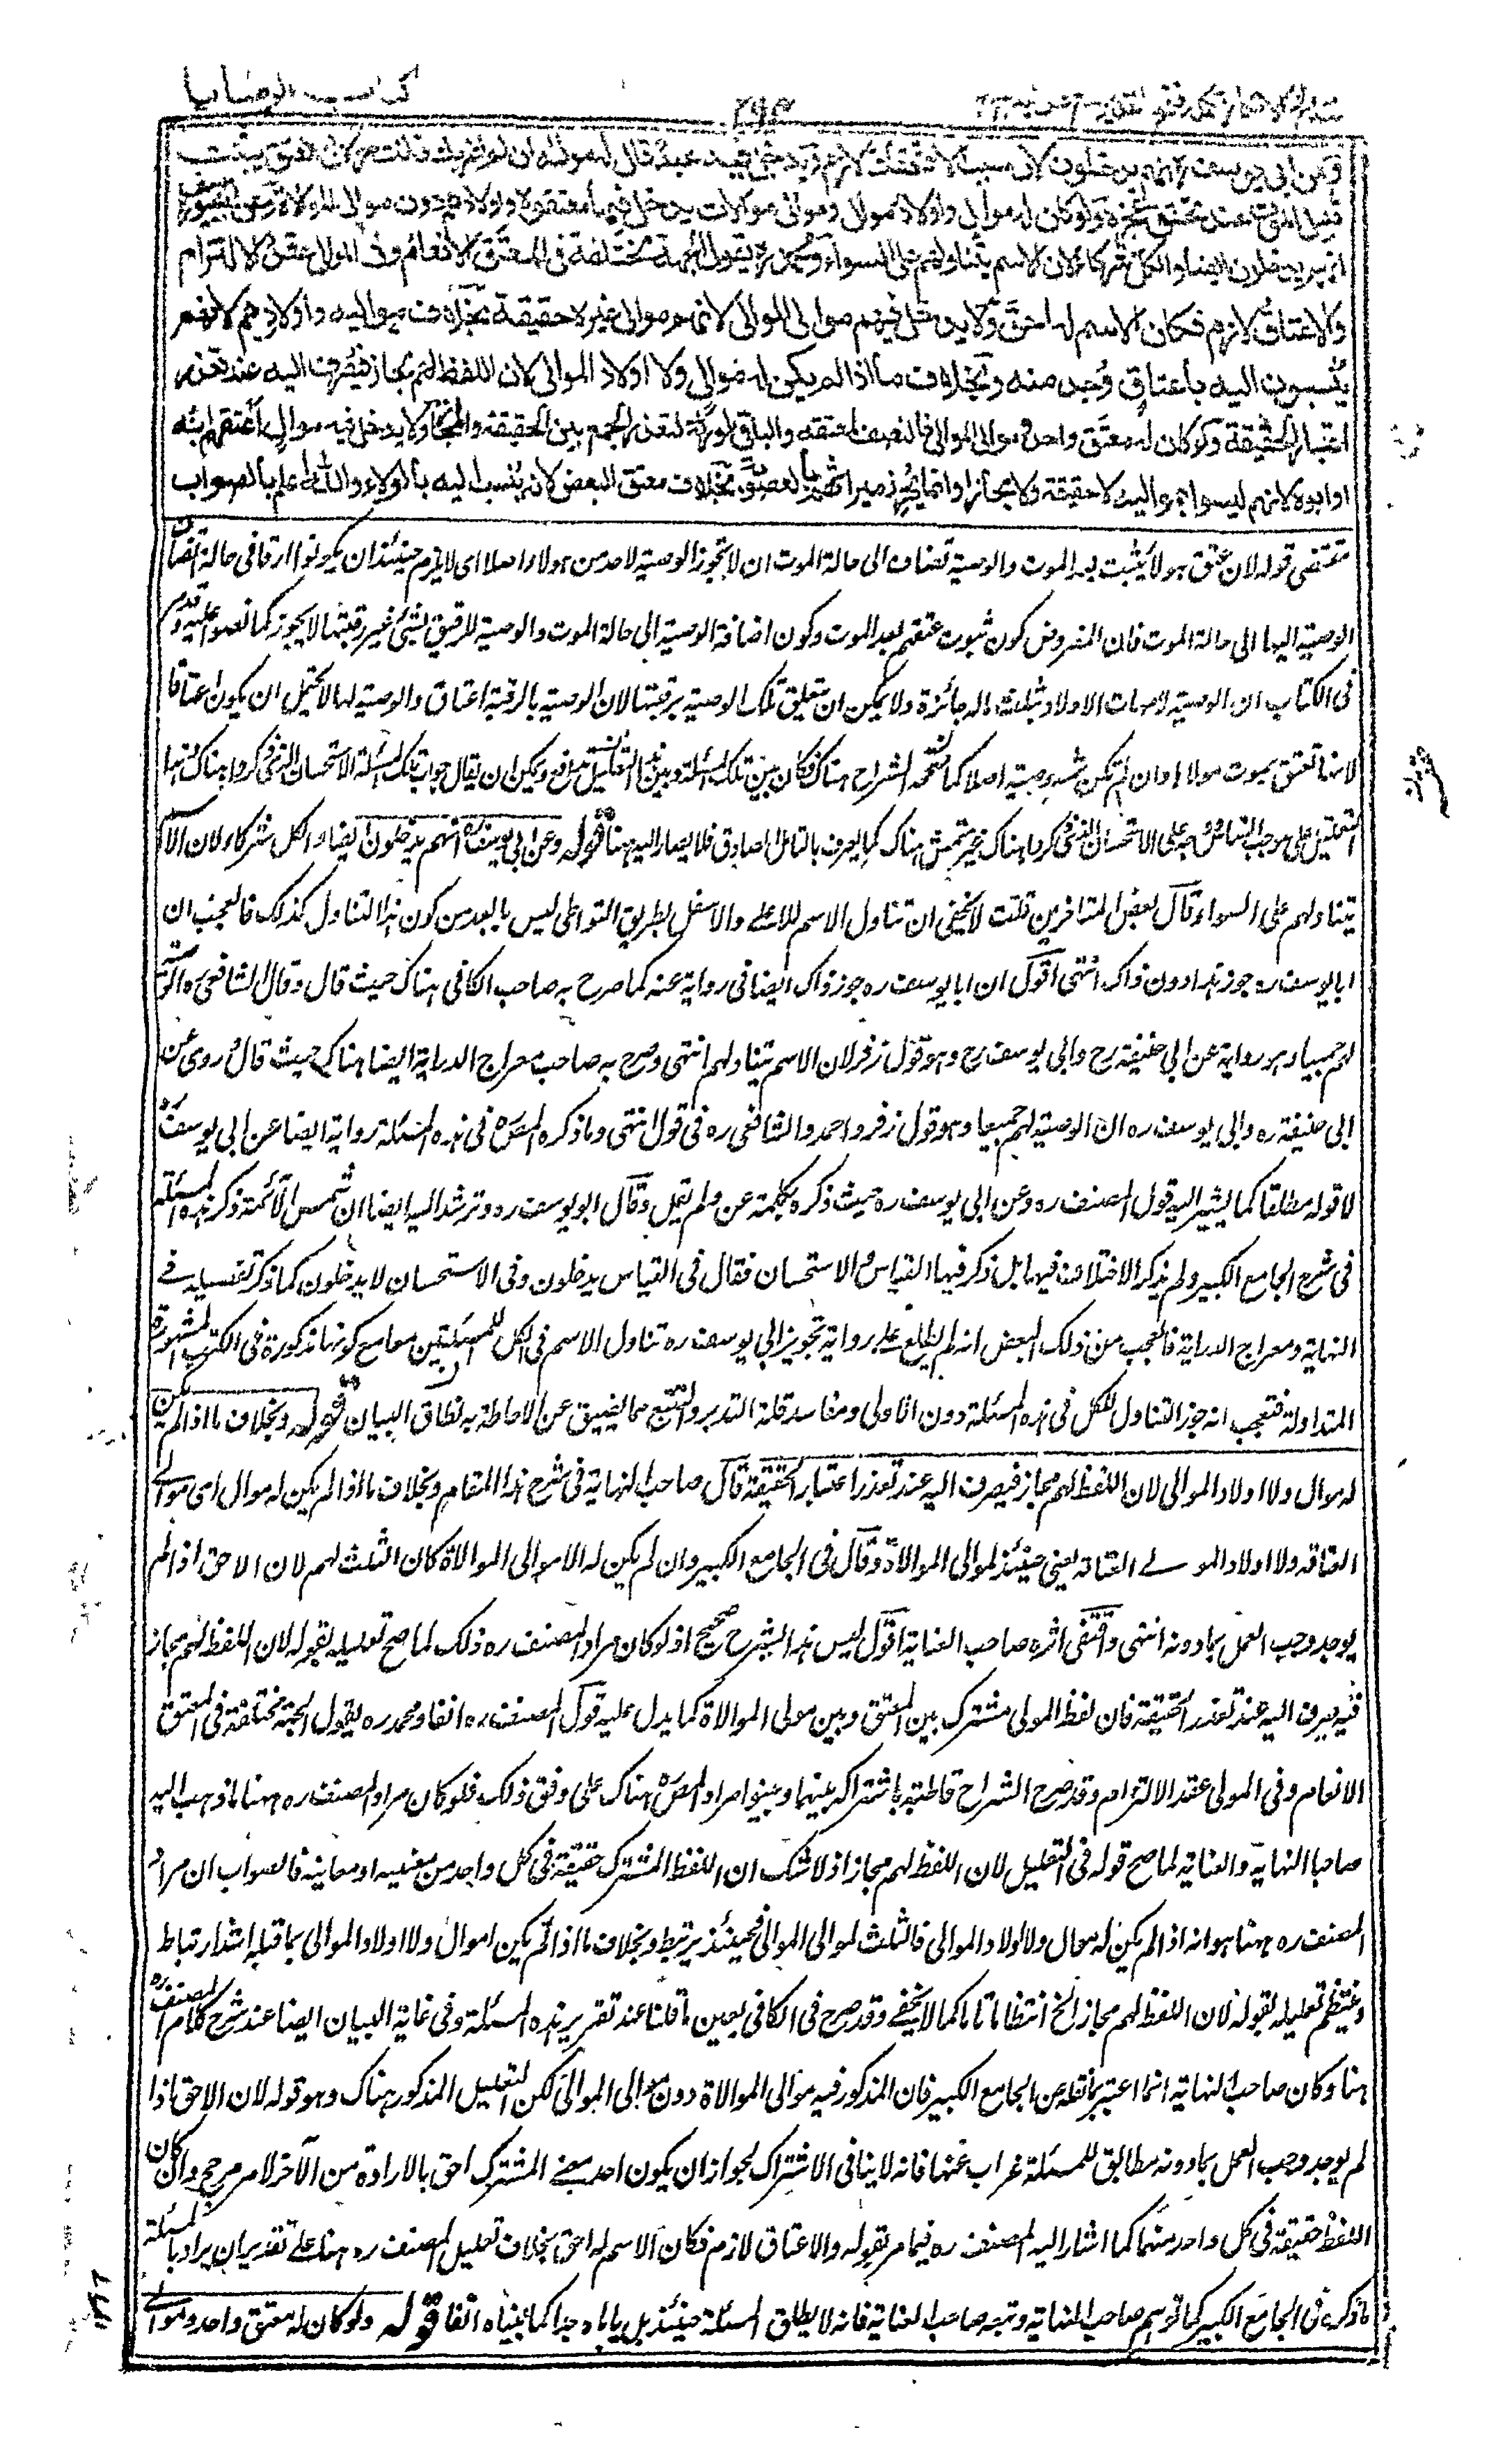 كتاب الوصايا
وعن ابي يوسف رح انهم يدخلون لان سبب الاستحقاق لازم ويدخل فيه عبد قال له مولاه ان لم اضربك فانت حر لان العتق يثبت
قبيل الموت عند تحقق عجزه ولو كان له موال واولاد موال وموالي موالات يدخل فيها معتقوه واولادهم دون موالي الموالاة وعن ابي يوسف
انهم يدخلون ايضا والكل شركاء لان الاسم يتناولهم على السواء ومحمد ره يقول الجهة مختلفة في المعتق الانعام وفي الموالي عقد الالتزام
والاعتاق لازم فكان الاسم له احق ولا يدخل فيهم موالي الموالي لانهم موالي غيره حقيقة بخلاف مواليه واولادهم لانهم
ينسبون اليه باعتاق وجد منه وبخلاف ما اذا لم يكن له موالي ولا اولاد الموالي لان اللفظ لهم مجاز فيصرف اليه عند تعذر
اعتبار الحقيقة ولو كان له معتق واحد وموالي الموالي فالنصف لمعتقه والباقي للورثة لتعذر الجمع بين الحقيقة والمجاز ولا يدخل فيه موالٍ اعتقهم ابنه
او ابوه لانهم ليسوا بمواليه لا حقيقة ولا مجازا وانما يحرز ميراثهم بالعصوبة بخلاف معتق البعض لانه ينسب اليه بالولاء والله اعلم بالصواب
مقتضى قوله لان عتق هولا يثبت بعد الموت والوصية تضاف الى حالة الموت ان لا تجوز الوصية لاحد من هولاء اصلا اى لا يلزم حينئذ ان يكونوا ارقا في حالة تضاف
الوصية اليها الى حالة الموت فان المفروض كون ثبوت عتقهم بعد الموت وكون اضافة الوصية الى حالة الموت والوصية للرقيق بشئ غير رقبتها لا يجوز كما نصوا عليه وقد مر
فى الكتاب ان الوصية لامهات الاولاد بثلث ماله جائزة ولا يمكن ان تتعلق تلك الوصية برقبتها لان الوصية بالرقبة اعتاق والوصية لها لا يحتمل ان يكون اعتاقا
لانها تعتق بموت مولاها وان لم تكن ثمه وصية اصلا كما حققه الشراح هناك فكان بين تلك المسئلة وبين هذا التعليل تدافع ويمكن ان يقال جواب تلك المسئلة الاستحسان الذى ذكروا هناك وهذا
التعليل على موجب القياس ... على الاستحسان الذى ذكروا هناك غير متمش هناك كما يعرف بالتامل الصادق فلا يصار اليه هنا قوله وعن ابى يوسف ره انهم يدخلون ايضا والكل شركاء لان الاسم
يتناولهم على السواء قال بعض المتاخرين قلت لا يخفى ان تناول الاسم للاعلى والاسفل بطريق التواطى ليس بابعد من كون هذا التناول كذلك فالعجب ان
ابا يوسف ره جوز هذا دون ذاك انتهى اقول ان ابا يوسف ره جوز ذاك ايضا فى رواية عنه كما صرح به صاحب الكافى هناك حيث قال وقال الشافعى ره الوصية
لهم جميعا وهو رواية عن ابى حنيفة رح وابى يوسف رح وهو قول زفر لان الاسم يتناولهم انتهى وصرح به صاحب معراج الدراية ايضا هناك حيث قال وروى عن
ابى حنيفة ره وابى يوسف ره ان الوصية لهم جميعا وهو قول زفر واحمد والشافعى ره فى قول انتهى وما ذكره المص ره فى هذه المسئلة رواية ايضا عن ابى يوسف ره
لا قوله مطلقا كما يشير اليه قول المصنف ره وعن ابى يوسف ره حيث ذكره بكلمة عن ولم يقل وقال ابو يوسف ره وترشد اليه ايضا ان شمس الائمة ذكر هذه المسئلة
فى شرح الجامع الكبير ولم يذكر الاختلاف فيها بل ذكر فيها القياس والاستحسان فقال فى القياس يدخلون وفى الاستحسان لا يدخلون كما ذكر تفصيله فى
النهاية ومعراج الدراية فالعجب من ذلك البعض انه لم يطلع على رواية تجويز ابى يوسف ره تناول الاسم فى الكل للمسئلتين معا مع كونها مذكورة فى الكتب المشهورة
المتداولة فتعجب انه جوز التناول للكل فى هذه المسئلة دون الاولى ومفاسد قلة التدبر والتتبع مما يضيق عن الاحاطة به نطاق البيان قوله وبخلاف ما اذا لم يكن
له موال ولا اولاد الموالى لان اللفظ لهم مجاز فيصرف اليه عند تعذر اعتبار الحقيقة قال صاحب النهاية فى شرح هذا المقام وبخلاف ما اذا لم يكن له موال اى موالى
العتاقه ولا اولاد الموالى العتاقه يعنى حينئذ لموالى الموالاة وقال فى الجامع الكبير وان لم يكن له الا موالى الموالاة كان الثلث لهم لان الاحق اذا لم
يوجد وجب العمل بما دونه انتهى واقتفى اثره صاحب العناية اقول ليس هذا الشرح صحيح اذ لو كان مراد المصنف ره ذلك لما صح تعليله بقوله لان اللفظ لهم مجاز
فيصرف اليه عند تعذر الحقيقة فان لفظ المولى مشترك بين المعتق وبين مولى الموالاة كما يدل عليه قول المصنف ره انفا ومحمد ره يقول الجهة مختلفة فى المعتق
الانعام وفى المولى عقد الالتزام وقد صرح الشراح قاطبة باشتراكه بينهما وبينوا مراد المص ره هناك على وفق ذلك فلو كان مراد المصنف ره ههنا ما ذهب اليه
صاحبا النهاية والعناية لما صح قوله فى التعليل لان اللفظ لهم مجاز اذ لا شك ان اللفظ المشترك حقيقة فى كل واحد من معنييه او معانيه فالصواب ان مراد
المصنف ره ههنا هو انه اذا لم يكن له موال ولا اولاد الموالى فالثلث لموالى الموالى فحينئذ يرتبط وبخلاف ما اذا لم يكن له موال ولا اولاد الموالى بما قبله اشد ارتباط
وينتظم تعليله بقوله لان اللفظ لهم مجاز الخ انتظاما تاما كما لا يخفى وقد صرح فى الكافى بعين ما قلنا عند تقرير هذه المسئلة وفى غاية البيان ايضا عند شرح كلام المصنف ره
هنا وكان صاحب النهاية انما اغتر بما نقله عن الجامع الكبير فان المذكور فيه موالى الموالاة دون موالى الموالى لكن التعليل المذكور هناك وهو قوله لان الاحق اذا
لم يوجد وجب العمل بما دونه مطابق للمسئلة غراب عنها فانه لا ينافى الاشتراك لجواز ان يكون احد معنى المشترك احق بالارادة من الآخر لامر مرجح وان كان
اللفظ حقيقة فى كل واحد منهما كما اشار اليه المصنف ره فيما مر بقوله والاعتاق لازم فكان الاسم له احق بخلاف تعليل المصنف ره هنا على تقدير ان يراد بالمسئلة
ما ذكره فى الجامع الكبير كما توهم صاحب النهاية وتبعه صاحب العناية فانه لا يطابق المسئلة حينئذ بل ياباه جدا كما بيناه انفا قوله ولو كان له معتق واحد وموالى